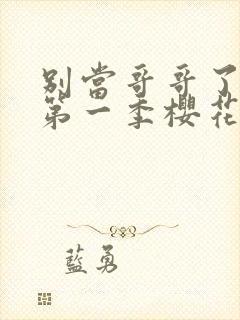 別當哥哥了
第一季櫻花
藍勇